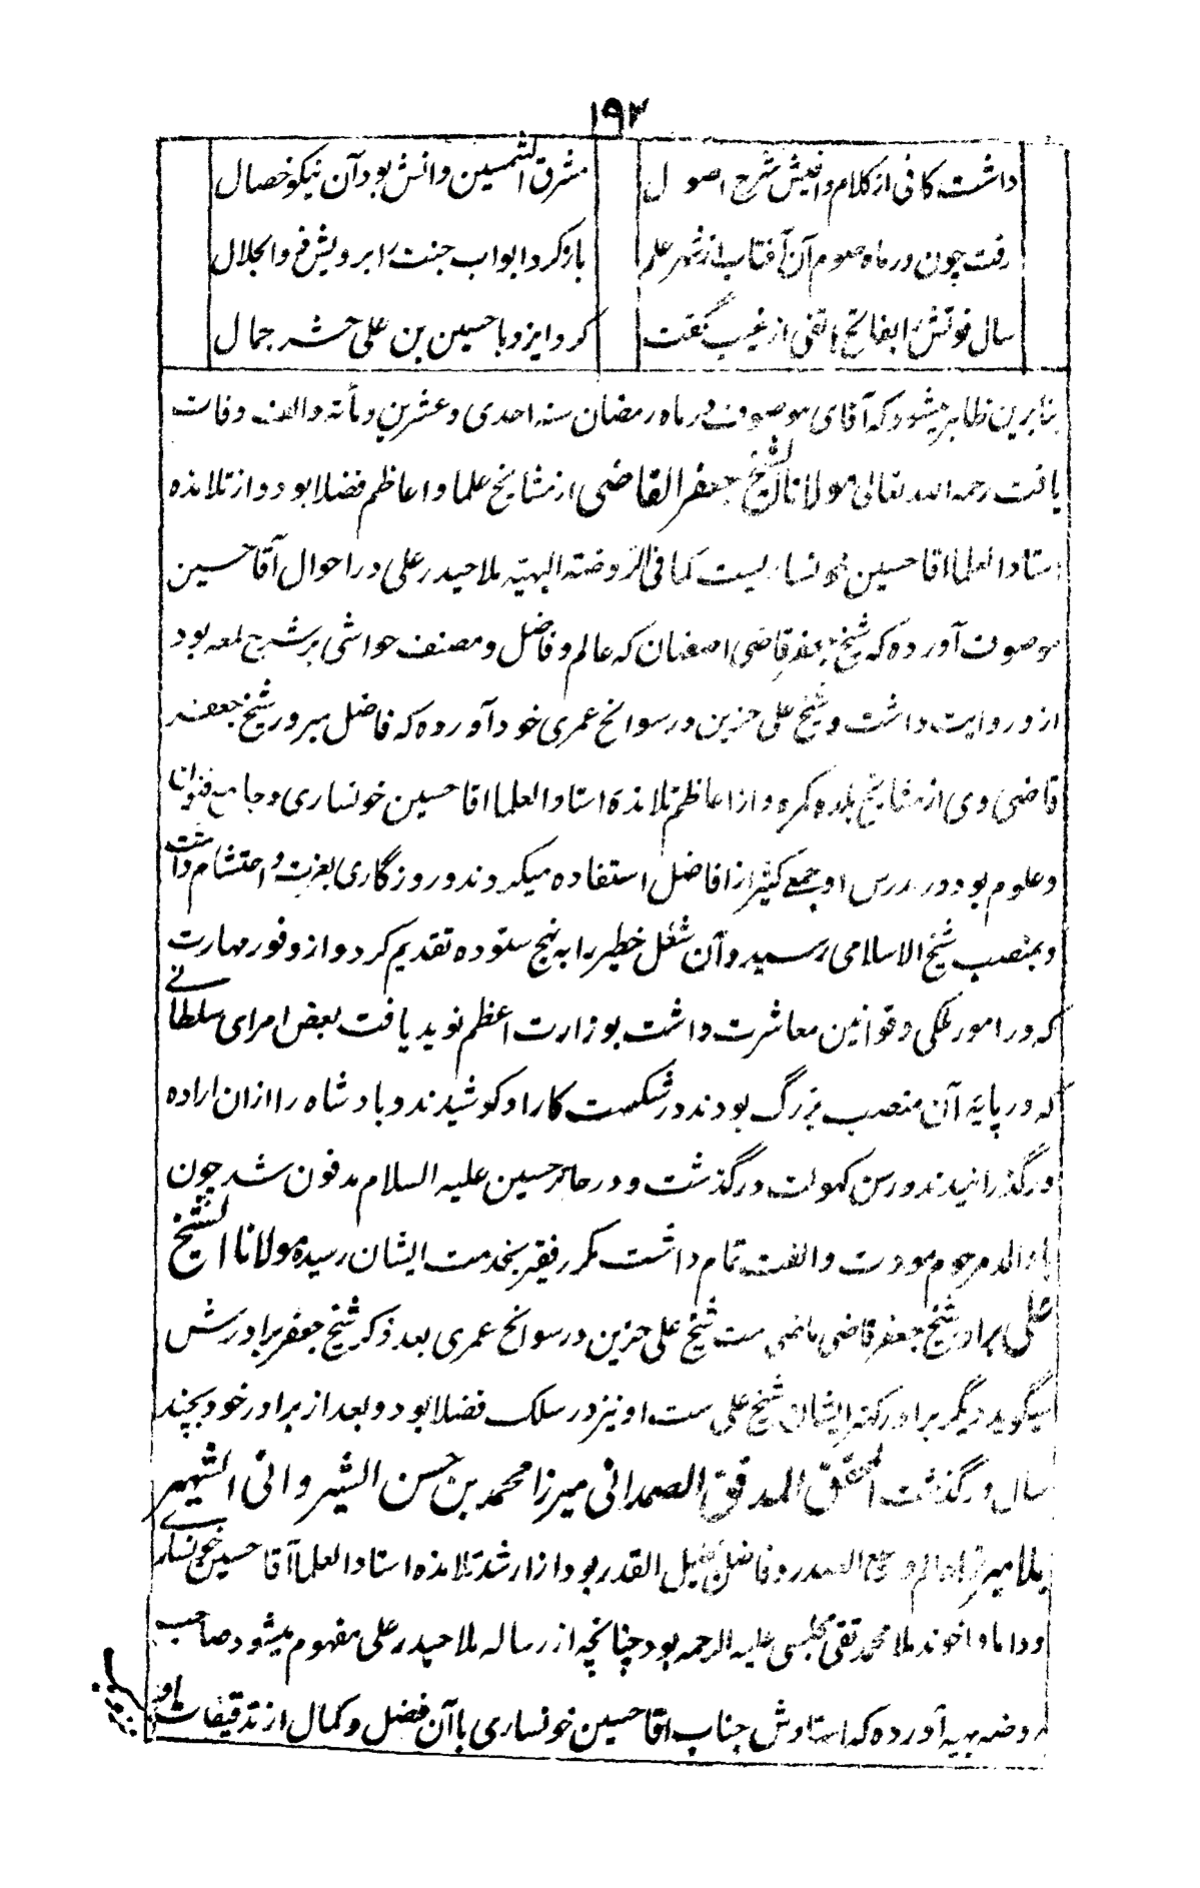 ١٩٢
داشت کافی از کلام وافیش شرح اصول مشرق الشمسین دانش بود آن نیکو خصال
رفت چون در ماه صوم آن آفتاب از شهر علم باز کرد ابواب جنت را برویش ذوالجلال
سال فوتش را بفاتح هاتفی از غیب گفت کرد ایزد با حسین بن علی حشر جمال
بنابرین ظاهر میشود که آقای موصوف در ماه رمضان سنه احدی و عشرین و مأته و الف وفات
یافت رحمه الله تعالی مولانا الشیخ جعفر القاضی از مشایخ علما و اعاظم فضلا بود و از تلامذه
استاد العلما اقا حسین خونساریست کما فی الروضته البهیته ملا حیدر علی در احوال آقا حسین
موصوف آورده که شیخ جعفر قاضی اصفهان که عالم و فاضل و مصنف حواشی بر شرح لمعه بود
ازو روایت داشت و شیخ علی حزین در سوانح عمری خود آورده که فاضل سرور شیخ جعفر
قاضی وی از مشایخ بلده کمره و از اعاظم تلامذه استاد العلما اقا حسین خونساری و جامع فنون
و علوم بود و در مدرس او جمعے کثیر از افاضل استفاده میکردند و روزگاری بعزت و احتشام داشت
و بمنصب شیخ الاسلامی رسید و آن شغل خطیر را به نهج ستوده تقدیم کرد و از وفور مهارت
که در امور ملکی و قوانین معاشرت داشت بوزارت اعظم نوید یافت بعض امرای سلطانے
که در پایه آن منصب بزرگ بودند در شکست کار او کوشیدند و بادشاه را ازان اراده
درگذرانیدند و در سن کهولت درگذشت و در حائر حسین علیه السلام مدفون شد چون
با والد مرحوم مودت و الفت تمام داشت مکرر فقیر بخدمت ایشان رسیده مولانا الشیخ
علی برادر شیخ جعفر قاضی ماضی ست شیخ علی حزین در سوانح عمری بعد ذکر شیخ جعفر برادرش
میگوید دیگر برادر کهتر ایشان شیخ علی ست او نیز در سلک فضلا بود و بعد از برادر خود بچند
سال درگذشت المحقق المدقق الصمدانی میرزا محمد بن حسن الشیروانی الشهیر
بملا میرزا عالم وسیع الصدر و فاضل جلیل القدر بود از ارشد تلامذه استاد العلما آقا حسین خونسارے
و داماد اخوند ملا محمد تقی مجلسی علیه الرحمه بود چنانچه از رساله ملا حیدر علی مفهوم میشود صاحب
روضه بهیه آورده که استادش جناب اقا حسین خونساری با آن فضل و کمال از تدقیقات او